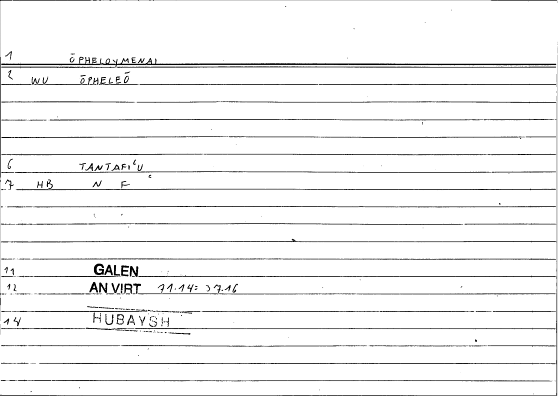 1 ŌPHELOYMENAI
2 WU ŌPHELEŌ
6 TANTAFIʿU
7 HB N F ʿ
11 GALEN
12 AN VIRT 71.14: 27.16
14 HUBAYSH